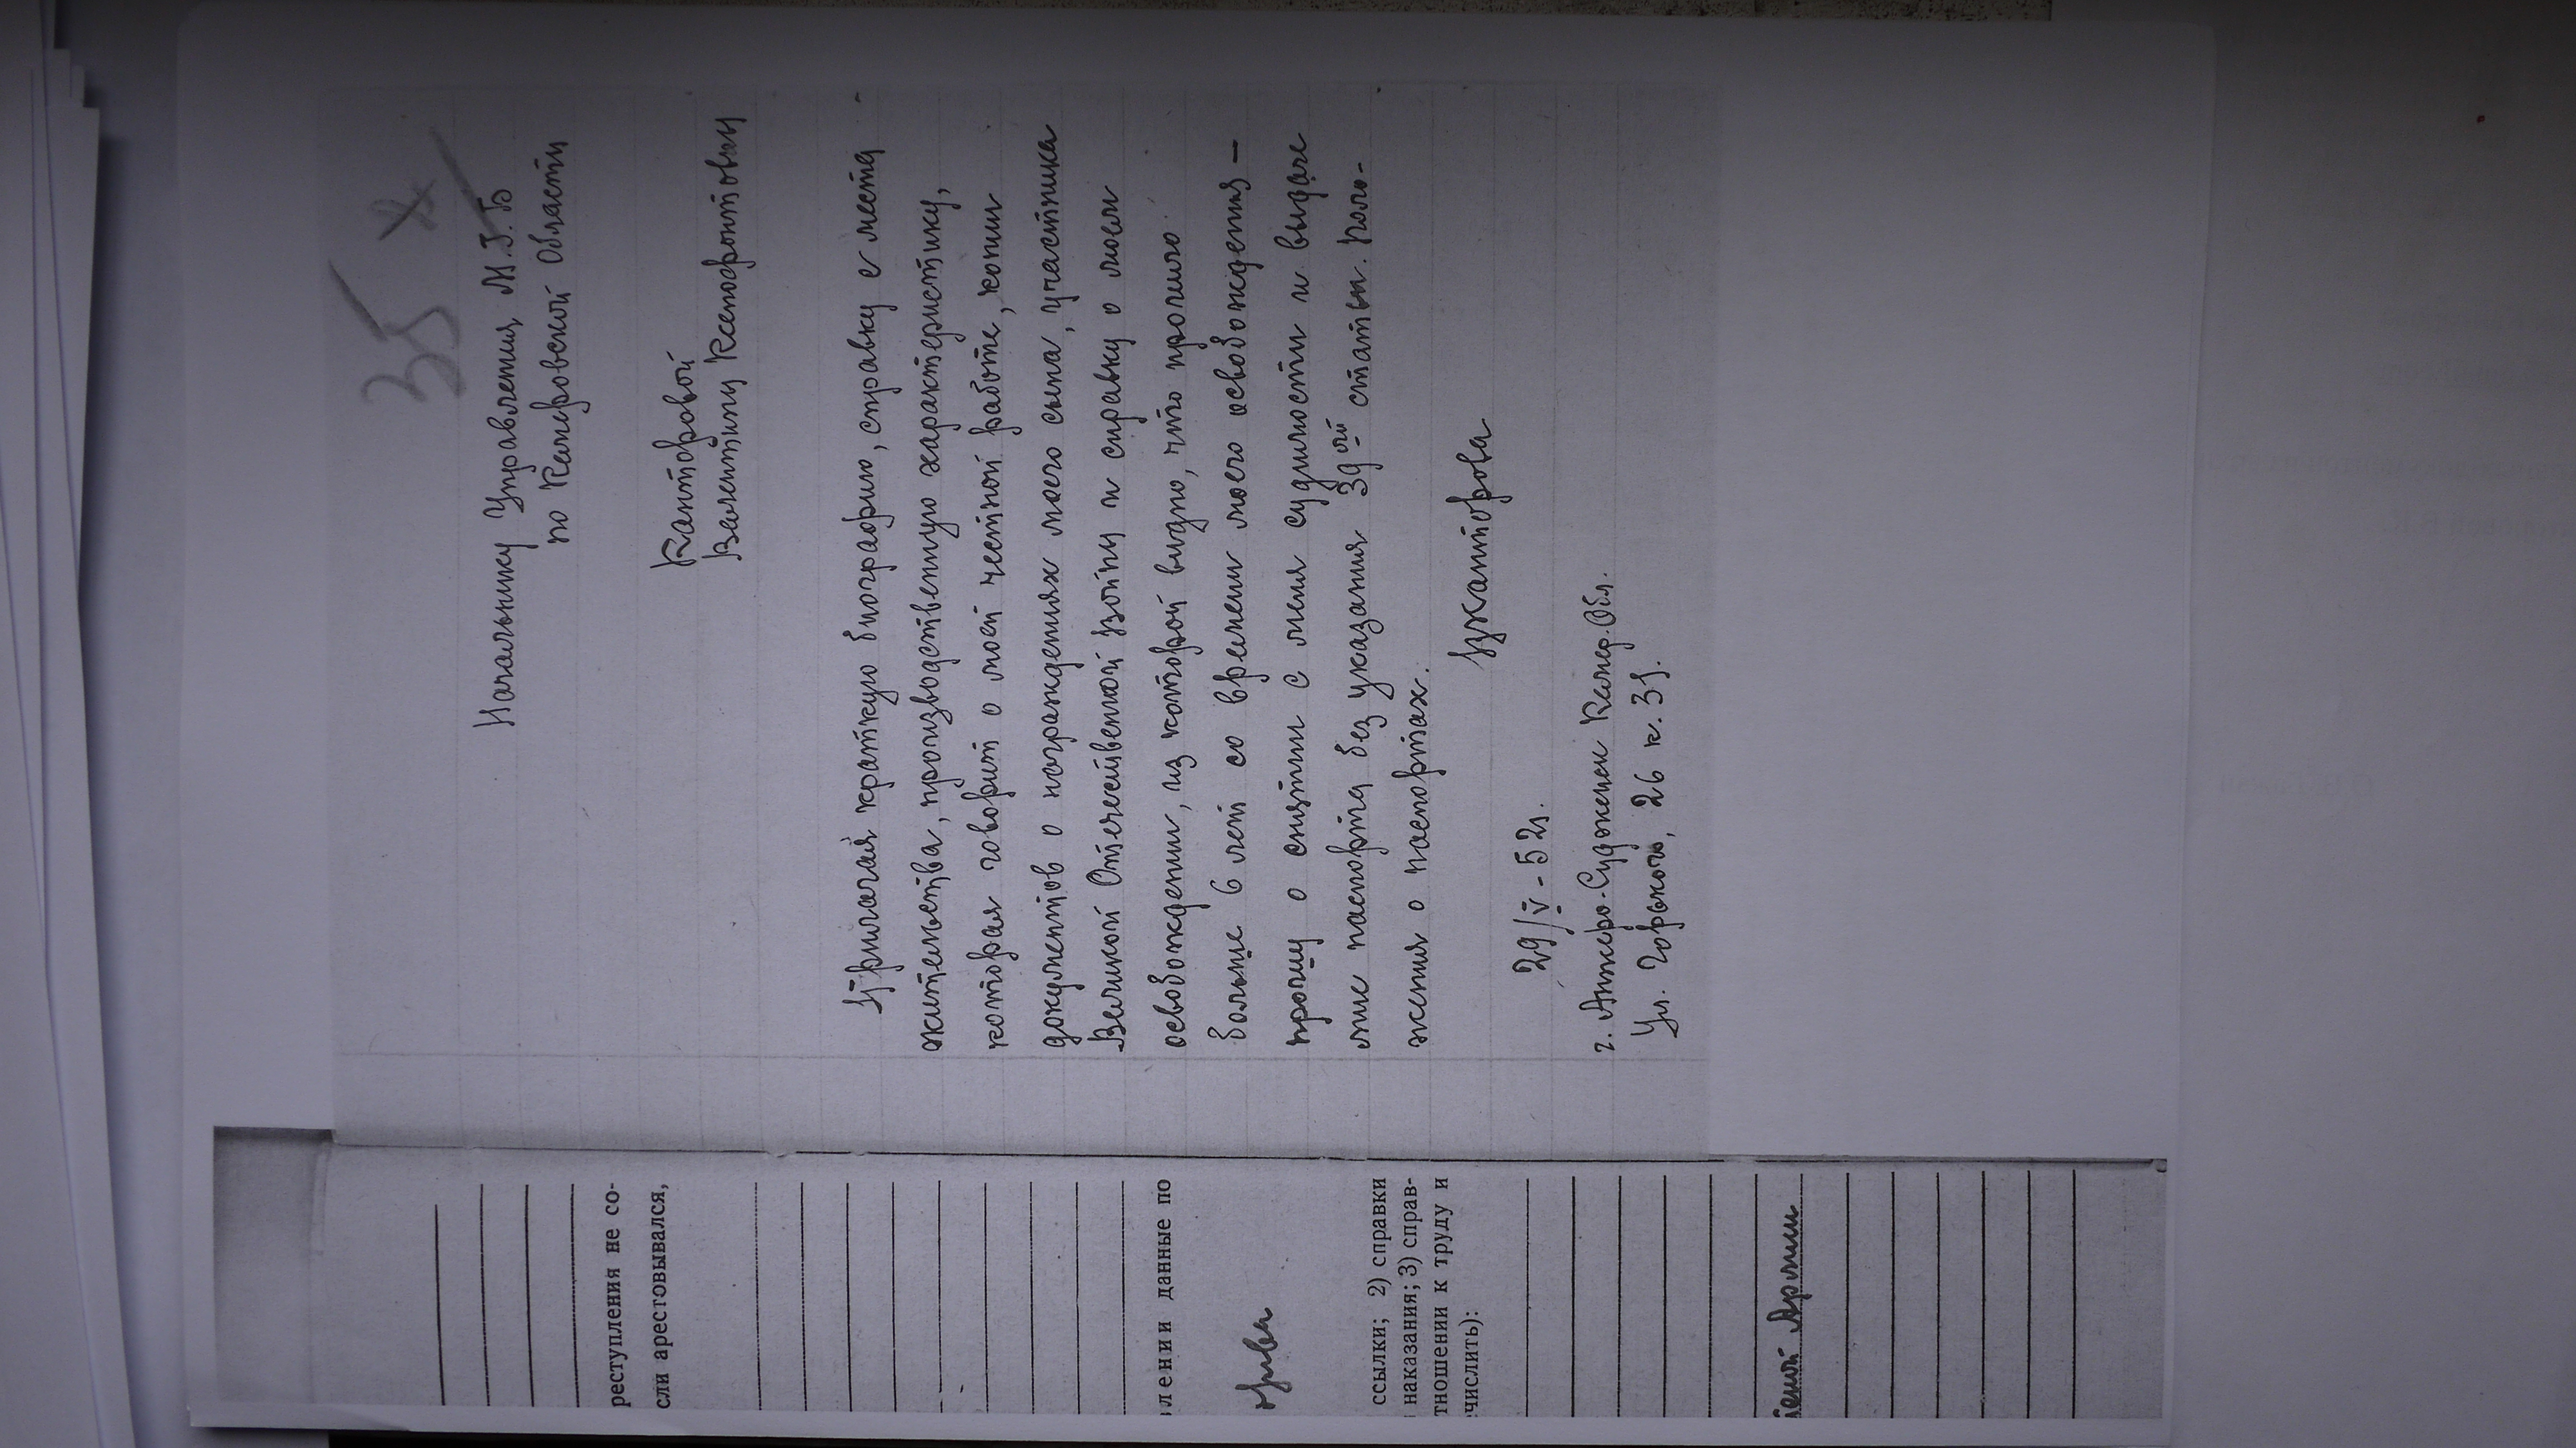 35
Начальнику Управления М.Г.Б
по Кемеровской Области
Канторовой
Валентины Ксенофонтовны
Прилагая краткую биографию, справку с места
жительства, производственную характеристику,
которая говорит о моей честной работе, копии
документов о награждениях моего сына, участника
Великой Отечественной Войны и справку о моем
освобождении, из которой видно, что прошло
больше 6 лет со времени моего освобождения –
прошу о снятии с меня судимости и выдаче
мне паспорта без указания 39ой статьи. Поло-
жения о паспортах.
ВКанторова
29/V - 52г.
г. Анжеро-Судженск Кемер. Обл.
Ул. Горького, 26 к. 31.
реступления не со-
сли арестовывался,
лении данные по
ссылки; 2) справки
наказания; 3) справ-
тношении к труду и
числить):
Армии